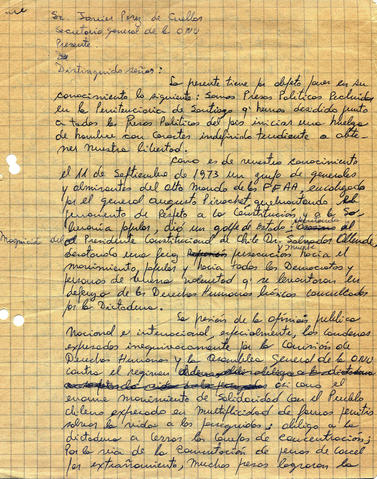 Sr. Javier Pérez de Cuellar
Secretario General de la ONU
Presente
Distinguido señor:
La presente tiene por objeto poner en su
conocimiento lo siguiente: Somos Presos Políticos Recluidos
en la Penitenciaría de Santiago q' hemos decidido junto
a todos los Presos Políticos del país iniciar una huelga
de hambre con carácter indefinido tendiente a obte-
ner nuestra libertad.
Como es de vuestro conocimiento
el 11 de Septiembre de 1973 un grupo de generales
y almirantes del alto Mando de las FFAA, encabezado
por el general Augusto Pinochet, quebrantando
juramento de Respeto a la Constitución y a la So-
beranía popular, dio un golpe de Estado
al Presidente Constitucional de Chile Dr. Salvador Allende,
desatando una feroz persecución hacia el
movimiento popular y hacia todos los Demócratas y
personas de buena voluntad q' se levantaron en
defensa de los Derechos Humanos básicos conculcados
por la Dictadura.
La presión de la opinión pública
Nacional e internacional, especialmente, las condenas
expresadas inequívocamente por la Comisión de
Derechos Humanos y la Asamblea General de la ONU
contra el régimen
así como el
enorme movimiento de Solidaridad con el Pueblo
chileno expresado en multiplicidad de formas permitió
salvar la vida a los perseguidos; obligó a la
dictadura a cerrar los Campos de concentración;
Por la vía de la Conmutación de penas de cárcel
por extrañamiento, muchos presos lograron la